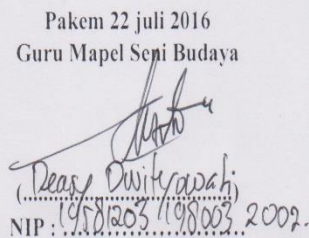 Pakem 22 juli 2016
Guru Mapel Seni Budaya
(Deasy Dwityowati)
NIP : 19581203 198003 2002.